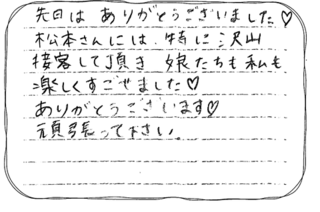 先日は ありがとうございました♡
松本さんには、特に沢山
接客して頂き 娘たちも私も
楽しくすごせました♡
ありがとうございます♡
頑張って下さい。